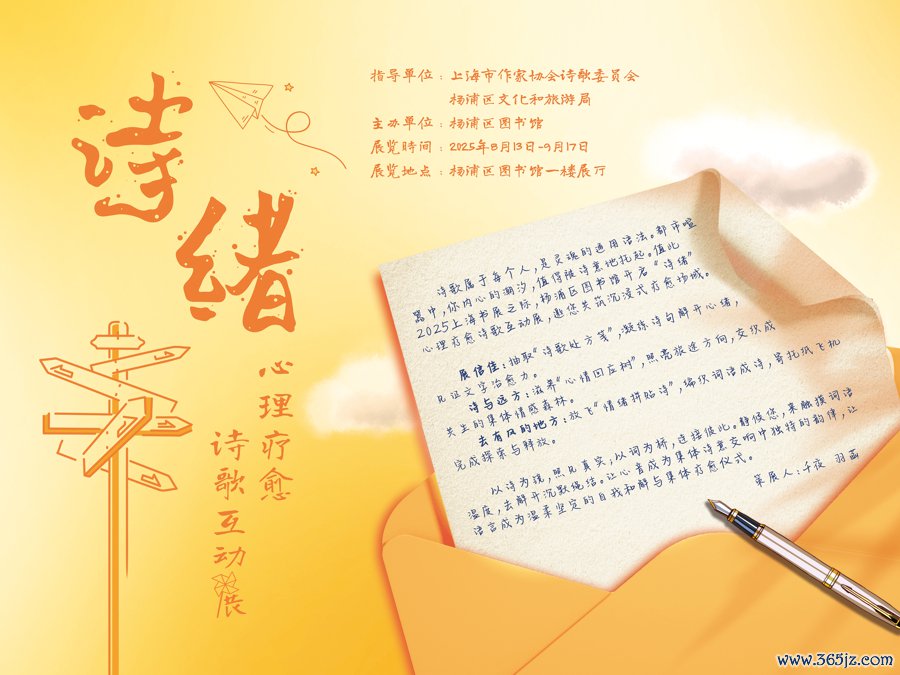 诗绪
心理疗愈
诗歌互动展
指导单位：上海市作家协会诗歌委员会
杨浦区文化和旅游局
主办单位：杨浦区图书馆
展览时间：2025年8月13日-9月17日
展览地点：杨浦区图书馆一楼展厅
诗歌属于每个人，是灵魂的通用语法。都市喧
嚣中，你内心的潮汐，值得被诗意地托起。值此
2025上海书展之际，杨浦区图书馆开启“诗绪”
心理疗愈诗歌互动展，邀您共筑沉浸式疗愈场域。
展信佳：抽取“诗歌处方笺”，凝练诗句解开心绪，
见证文字治愈力。
诗与远方：滋养“心情回应树”，照亮旅途方向，交织成
共生的集体情感森林。
去有风的地方：放飞“情绪拼贴诗”，编织词语成诗，寄托纸飞机
完成探索与释放。
以诗为镜，照见真实，以词为桥，连接彼此。静候您，来触摸词语
温度，去解开沉默绳结。让心音成为集体诗意交响中独特的韵律，让
语言成为温柔坚定的自我和解与集体疗愈仪式。
策展人：千夜 羽菡
www.365jz.com